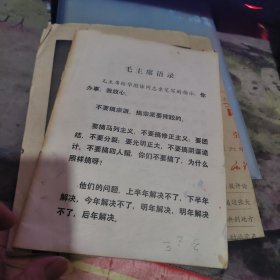 毛主席语录
毛主席给华国锋同志亲笔写的指示：你
办事，我放心。
不要搞宗派，搞宗派要摔跤的。
要搞马列主义，不要搞修正主义；要团
结，不要分裂；要光明正大，不要搞阴谋诡
计。不要搞四人帮，你们不要搞了，为什么
照样搞呀？
他们的问题，上半年解决不了，下半年
解决，今年解决不了，明年解决，明年解决
不了，后年解决。